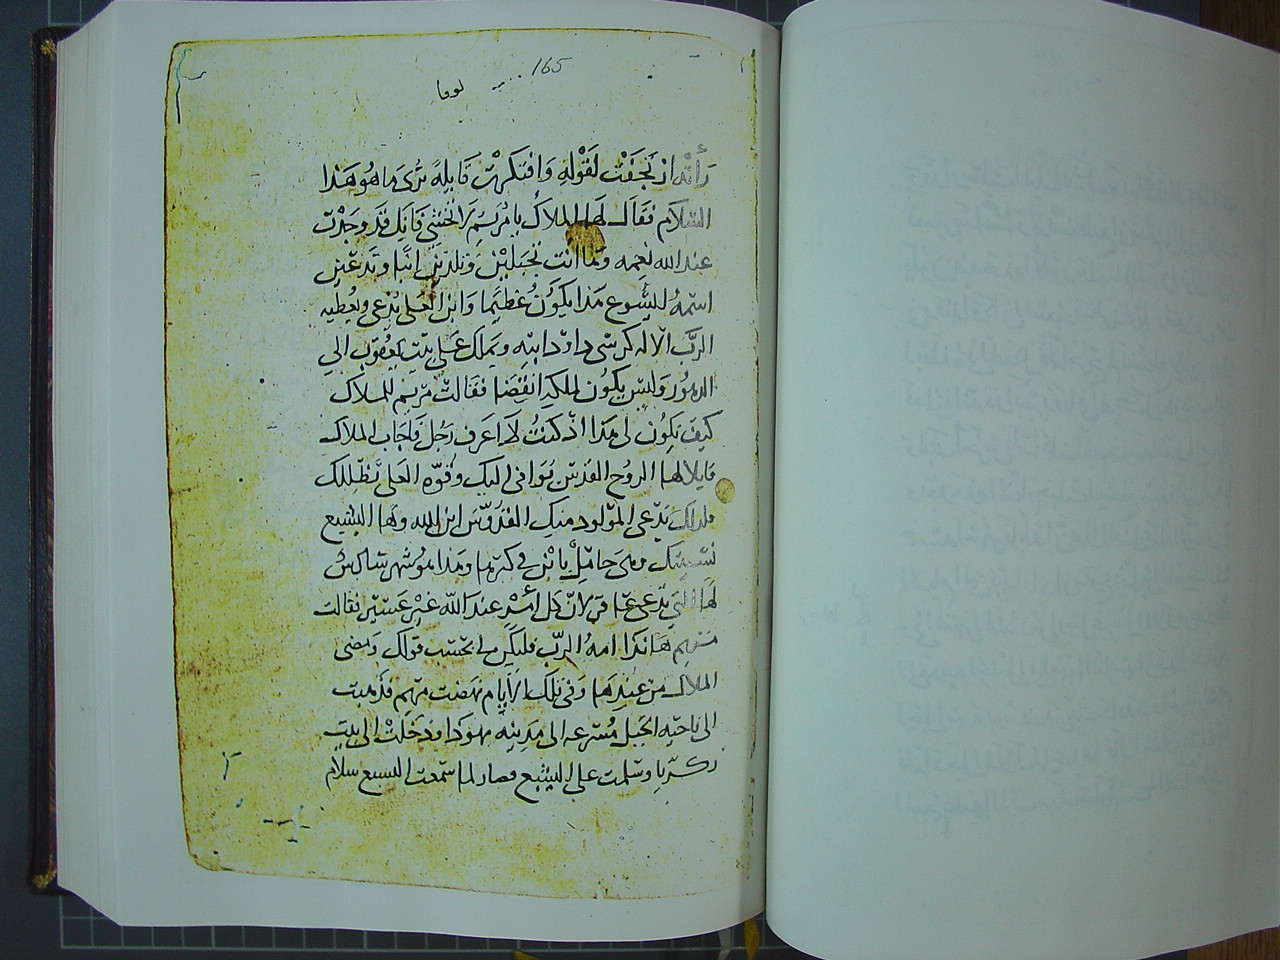 165
لوقا
رأته ارتجفت لقوله وافتكرت قايلة ترى ما هو هذا
السلام فقال لها الملاك يا مريم لا تخشي فانك قد وجدت
عند الله نعمه وها انت تحبلين وتلدين ابنا وتدعين
اسمه ايسوع هذا يكون عظيما وابن العلي يدعى ويعطيه
الرب الاله كرسي داود ابيه ويملك على بيت يعقوب الى
الدهور وليس يكون لملكه انقضا فقالت مريم للملاك
كيف يكون لي هذا اذ كنت لا اعرف رجل فاجاب الملاك
قايلا لها الروح القدس توافي اليك وقوة العلي تظللك
فلذلك يدعى المولود منك القدوس ابن الله وها اليشبع
نسيبتك وهي حامل بابن في كبرها وهذا هو شهر سادس
لها التي تدعى عاقر لان كل امر عند الله غير عسير فقالت
مريم هانذا امه الرب فليكن لي بحسب قولك ومضى
الملاك من عندها وفي تلك الايام نهضت مريم فذهبت
الى ناحيه الجبل مسرعه الى مدينه يهودا ودخلت الى بيت
زكريا وسلمت على اليشبع وصار لما سمعت اليسبع سلام